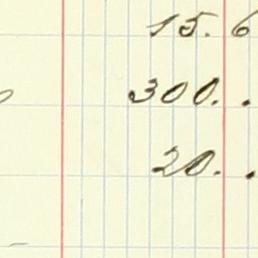 15. 6
300. .
20. .